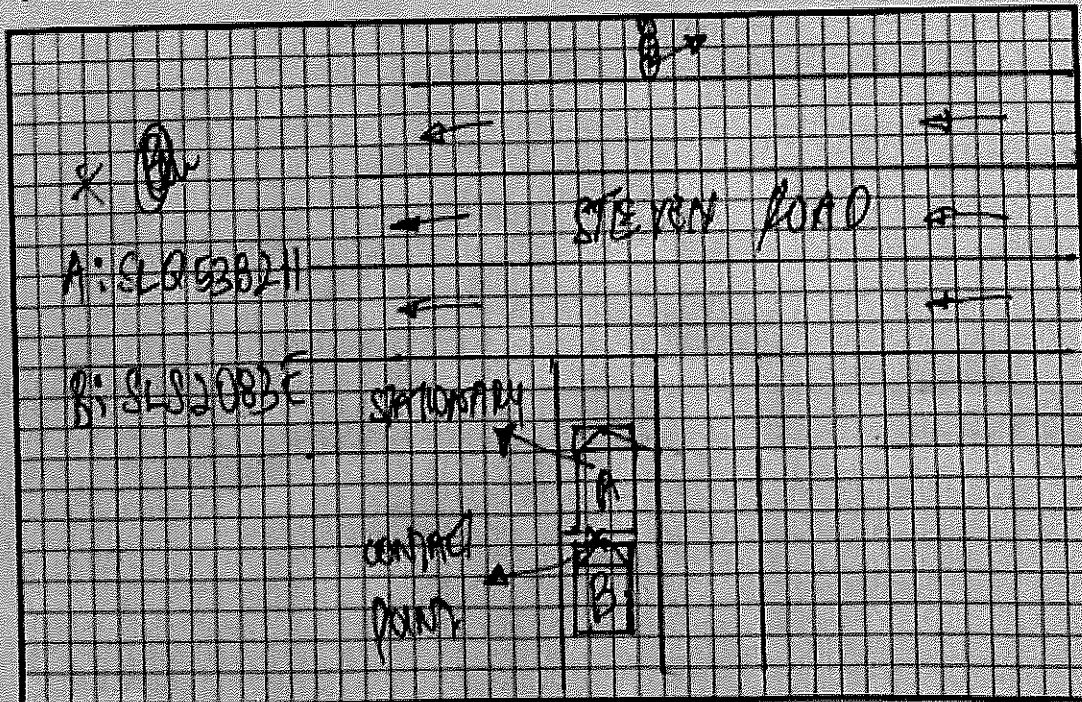 STEVEN ROAD
A: SLQ5382H
B: SLS2083E
STATIONARY
A
CONTACT
POINT
B